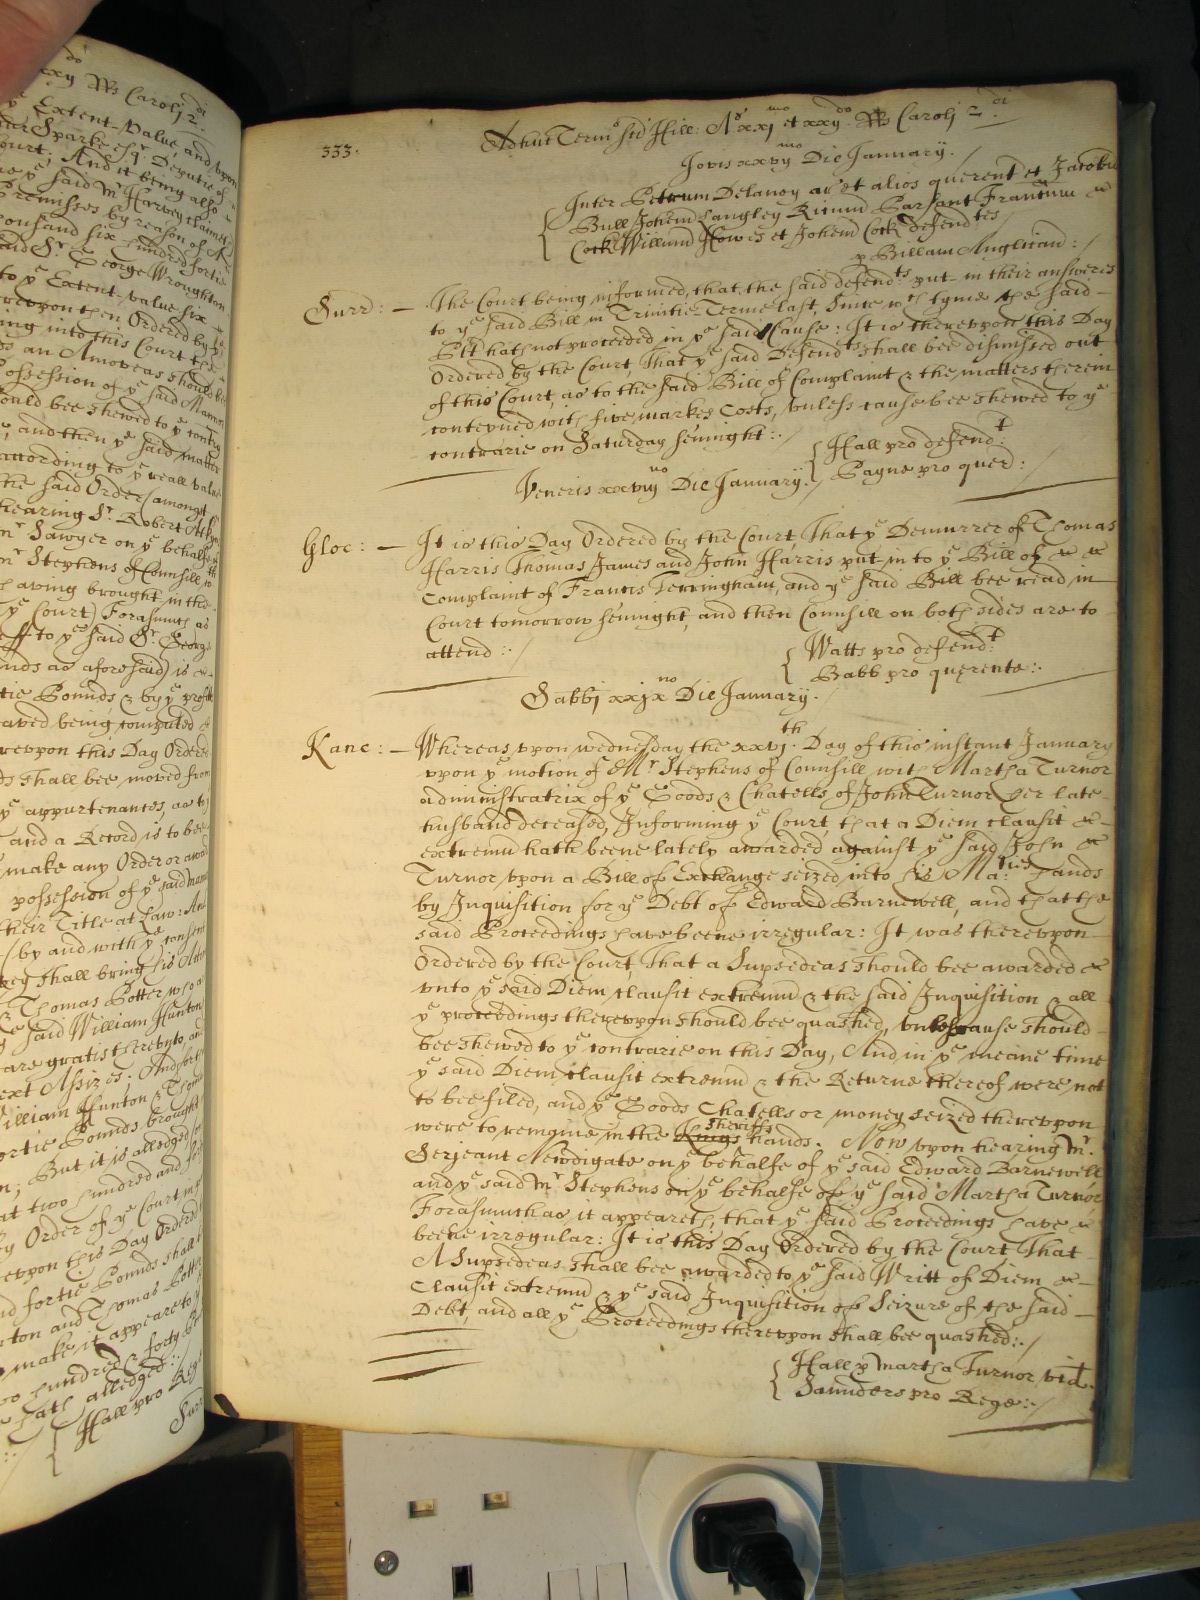 xxij RRs Caroli 2.di
ye Extent-Value, and upon
Sparke Esqr. Deputie of
Court; And it being also
ye said Mr Harvey claimes
Premisses by reason of
thousand six hundred fortie
said Sr. George Wroughton
to ye Extent-value six
therevpon then Ordered by ye
into this Court the
an Amoveas should
Possession of ye said Mannor
should bee shewed to ye contry
and then ye said matter
according to ye reall value
the said Order (amongst
hearing Sr. Robert Atkyns
Mr Sawyer on ye behalfe
Mr Stephens of Counsill
having brought in the
ye Court) Forasmuch as
to ye said Sr. George
as aforesaid) is
Pounds & by ye profitts
being computed
therevpon this Day Ordered
shall bee moved from
ye appurtenances, as to
and a Record is to bee
make any Order or
possession of ye said Mannor
their Title at Law: And
(by and with ye consent
shall bring his
Thomas Potter who
said William Hunton
are gratis therevnto, and
next Assizes; And
William Hunton & Thomas
fortie Pounds brought
But it is alledged
two hundred and
Order of ye Court
vpon this Day Ordered
fortie Pounds shall
and Thomas Potter
make it appeare to
hundred & forty
hath alledged:
Hall pro Rege
Surr
333.
Adhuc Termo Sci Hill: Ao xxjmo et xxijdo. RRs Caroli 2.di
Jovis xxvijmo Die January.
Inter Petrum Delaney ar' et alios querent et Jacobu
Bull Johem Langley Ricum Parsant Franciscum &
Cock Willimu Howes et Johem Cock defendtes
p Billam Anglican: /
Surr: — The Court being informed, that the said defendts put in their answeres
to ye said Bill in Trinitie-Terme last, Since wch tyme the said
Plt hath not proceeded in ye said Cause: It is therevpon this Day
Ordered by the Court, That ye said Defendts shall bee dismissed out
of this Court, as to the said Bill of Complaint & the matters therein
conteyned with five markes Costs, vnless cause bee shewed to ye
contrarie on Saturday sennight:. /
Hall pro defendt:
Pagne pro quer: /
Veneris xxviijuo Die January.
Gloc: — It is this Day Ordered by the Court, That ye Demurrer of Thomas
Harris Thomas James and John Harris put in to ye Bill of & &
Complaint of Francis Terringham, and ye said Bill bee read in
Court tomorrow sennight, and then Counsill on both sides are to
attend:. /
Watts pro defendt:
Babb pro querente:.
Sabbj xxjxno Die January. /
Kanc: — Whereas vpon wednesday the xxvj.th Day of this instant January
vpon ye motion of Mr Stephens of Counsill with Martha Turnor
administratrix of ye Goods & Chatells of John Turnor her late
husband deceased, Informing ye Court, that a Diem clausit &
extremu hath beene lately awarded against ye said John &
Turnor vpon a Bill of Exchange seized into his Ma:ties hands
by Inquisition for ye Debt of Edward Barnewell, and that the
said Proceedings have beene irregular: It was therevpon
Ordered by the Court, That a Supsedeas should bee awarded &
vnto ye said Diem clausit extremu & the said Inquisition & all
ye proceedings therevpon should bee quashed, vnless cause should
bee shewed to ye contrarie on this Day, And in ye meane time
ye said Diem clausit extremu & the Returne thereof were not
to bee filed, and ye Goods Chatells or money seized therevpon
were to remaine in the Kings Sheriffs hands. Now vpon hearing Mr.
Serjeant Newdigate on ye behalfe of ye said Edward Barnewell
and ye said Mr Stephens on ye behalfe of ye said Martha Turnor
Forasmuch as it appeareth, that ye said Proceedings have &
beene irregular: It is this Day Ordered by the Court That
A Supsedeas shall bee awarded to ye said Writt of Diem &
Clausit extremu & ye said Inquisition of Seizure of the said
Debt, and all ye Proceedings therevpon shall bee quashed:. /
Hall p Martha Turnor vid.
Saunders pro Rege:. /